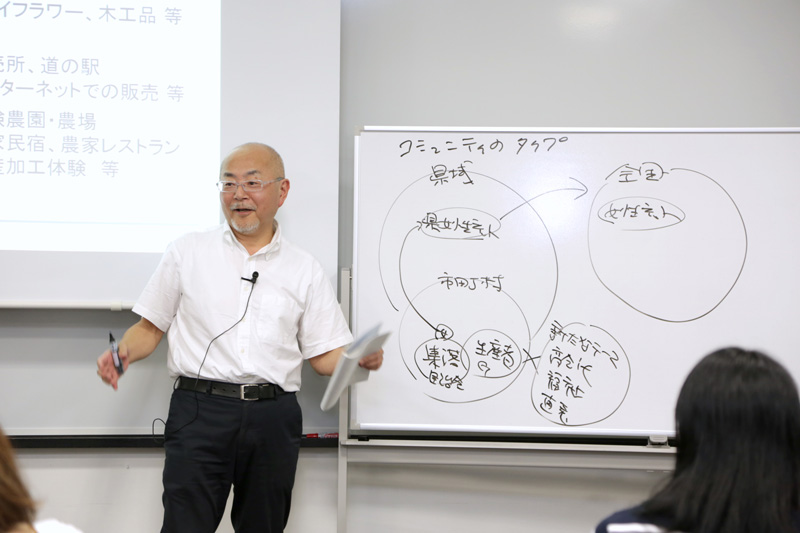 イフラワー、木工品 等
売所、道の駅
ターネットでの販売 等
農園・農場
民宿、農家レストラン
産加工体験 等
コミュニティのタイプ
県域
県女性ネット
全国
女性ネット
市田丁村
女
集落
自治会
生産者
G
新たなテーマ
高令化
福祉
直売